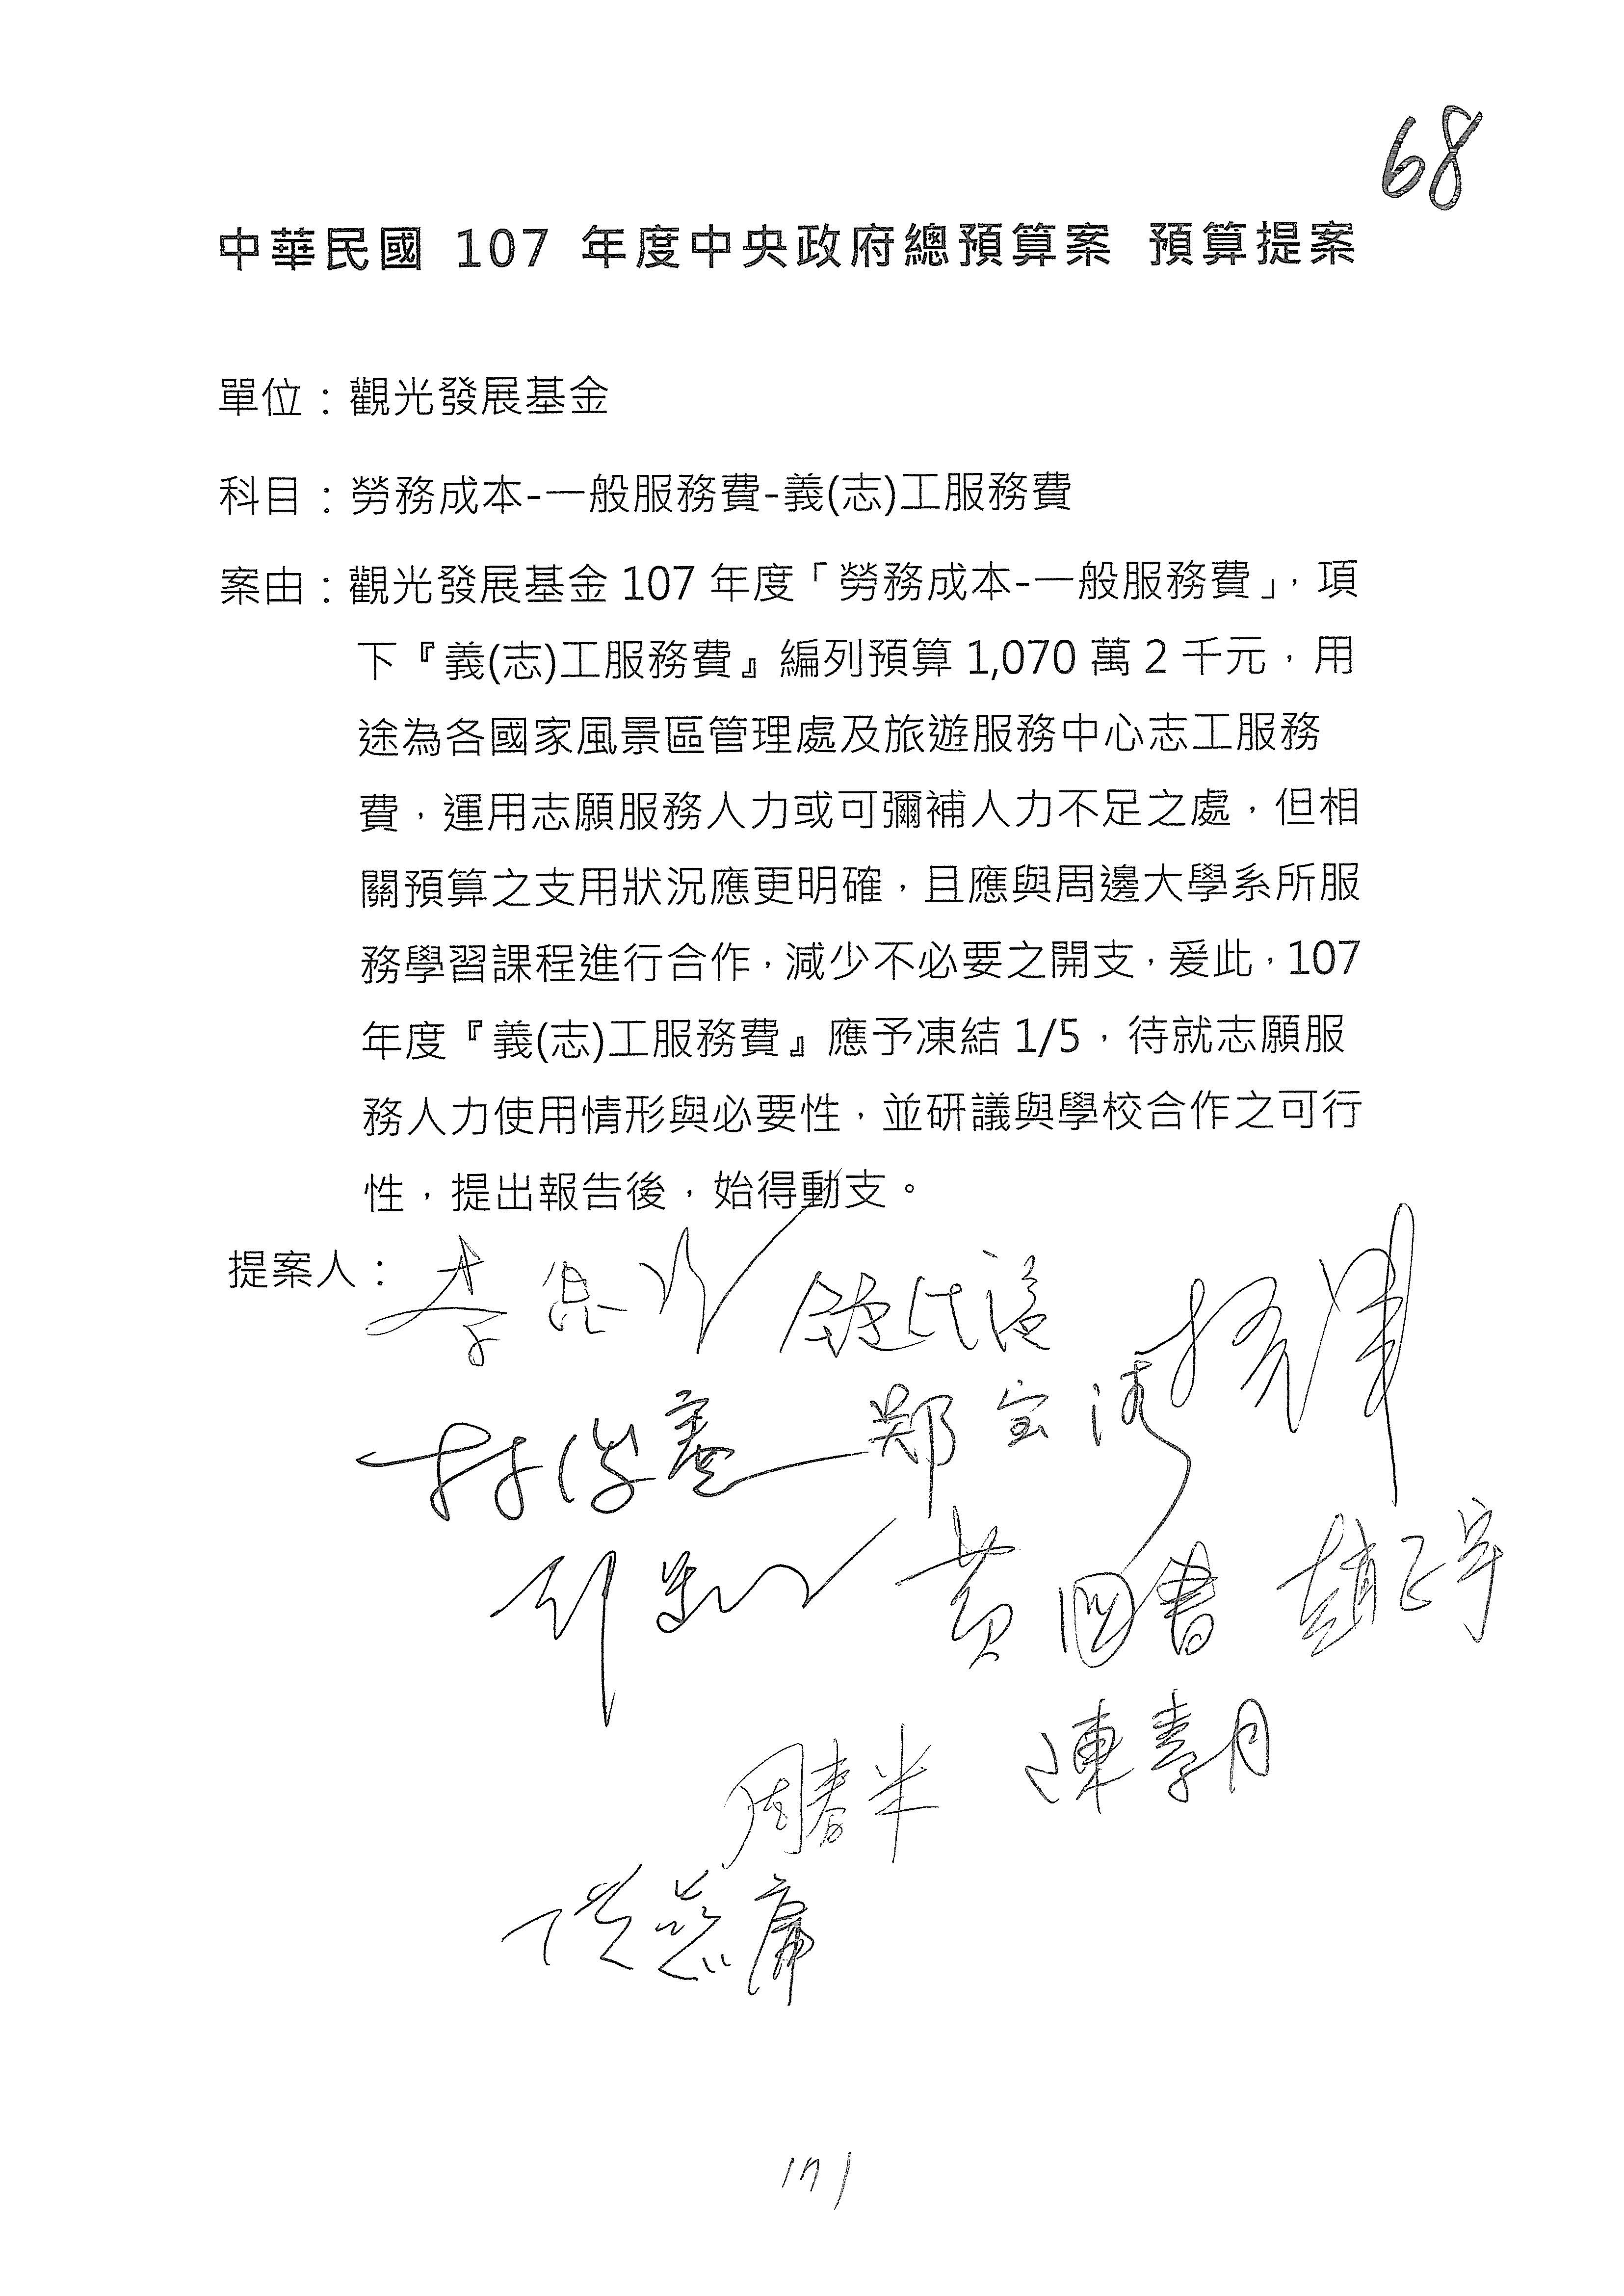 68
中華民國 107 年度中央政府總預算案 預算提案
單位：觀光發展基金
科目：勞務成本-一般服務費-義(志)工服務費
案由：觀光發展基金 107 年度「勞務成本-一般服務費」，項
下『義(志)工服務費』編列預算 1,070 萬 2 千元，用
途為各國家風景區管理處及旅遊服務中心志工服務
費，運用志願服務人力或可彌補人力不足之處，但相
關預算之支用狀況應更明確，且應與周邊大學系所服
務學習課程進行合作，減少不必要之開支，爰此，107
年度『義(志)工服務費』應予凍結 1/5，待就志願服
務人力使用情形與必要性，並研議與學校合作之可行
性，提出報告後，始得動支。
提案人：李昆
鄭宝清
黃國書 趙正宇
周春米 陳素月
171